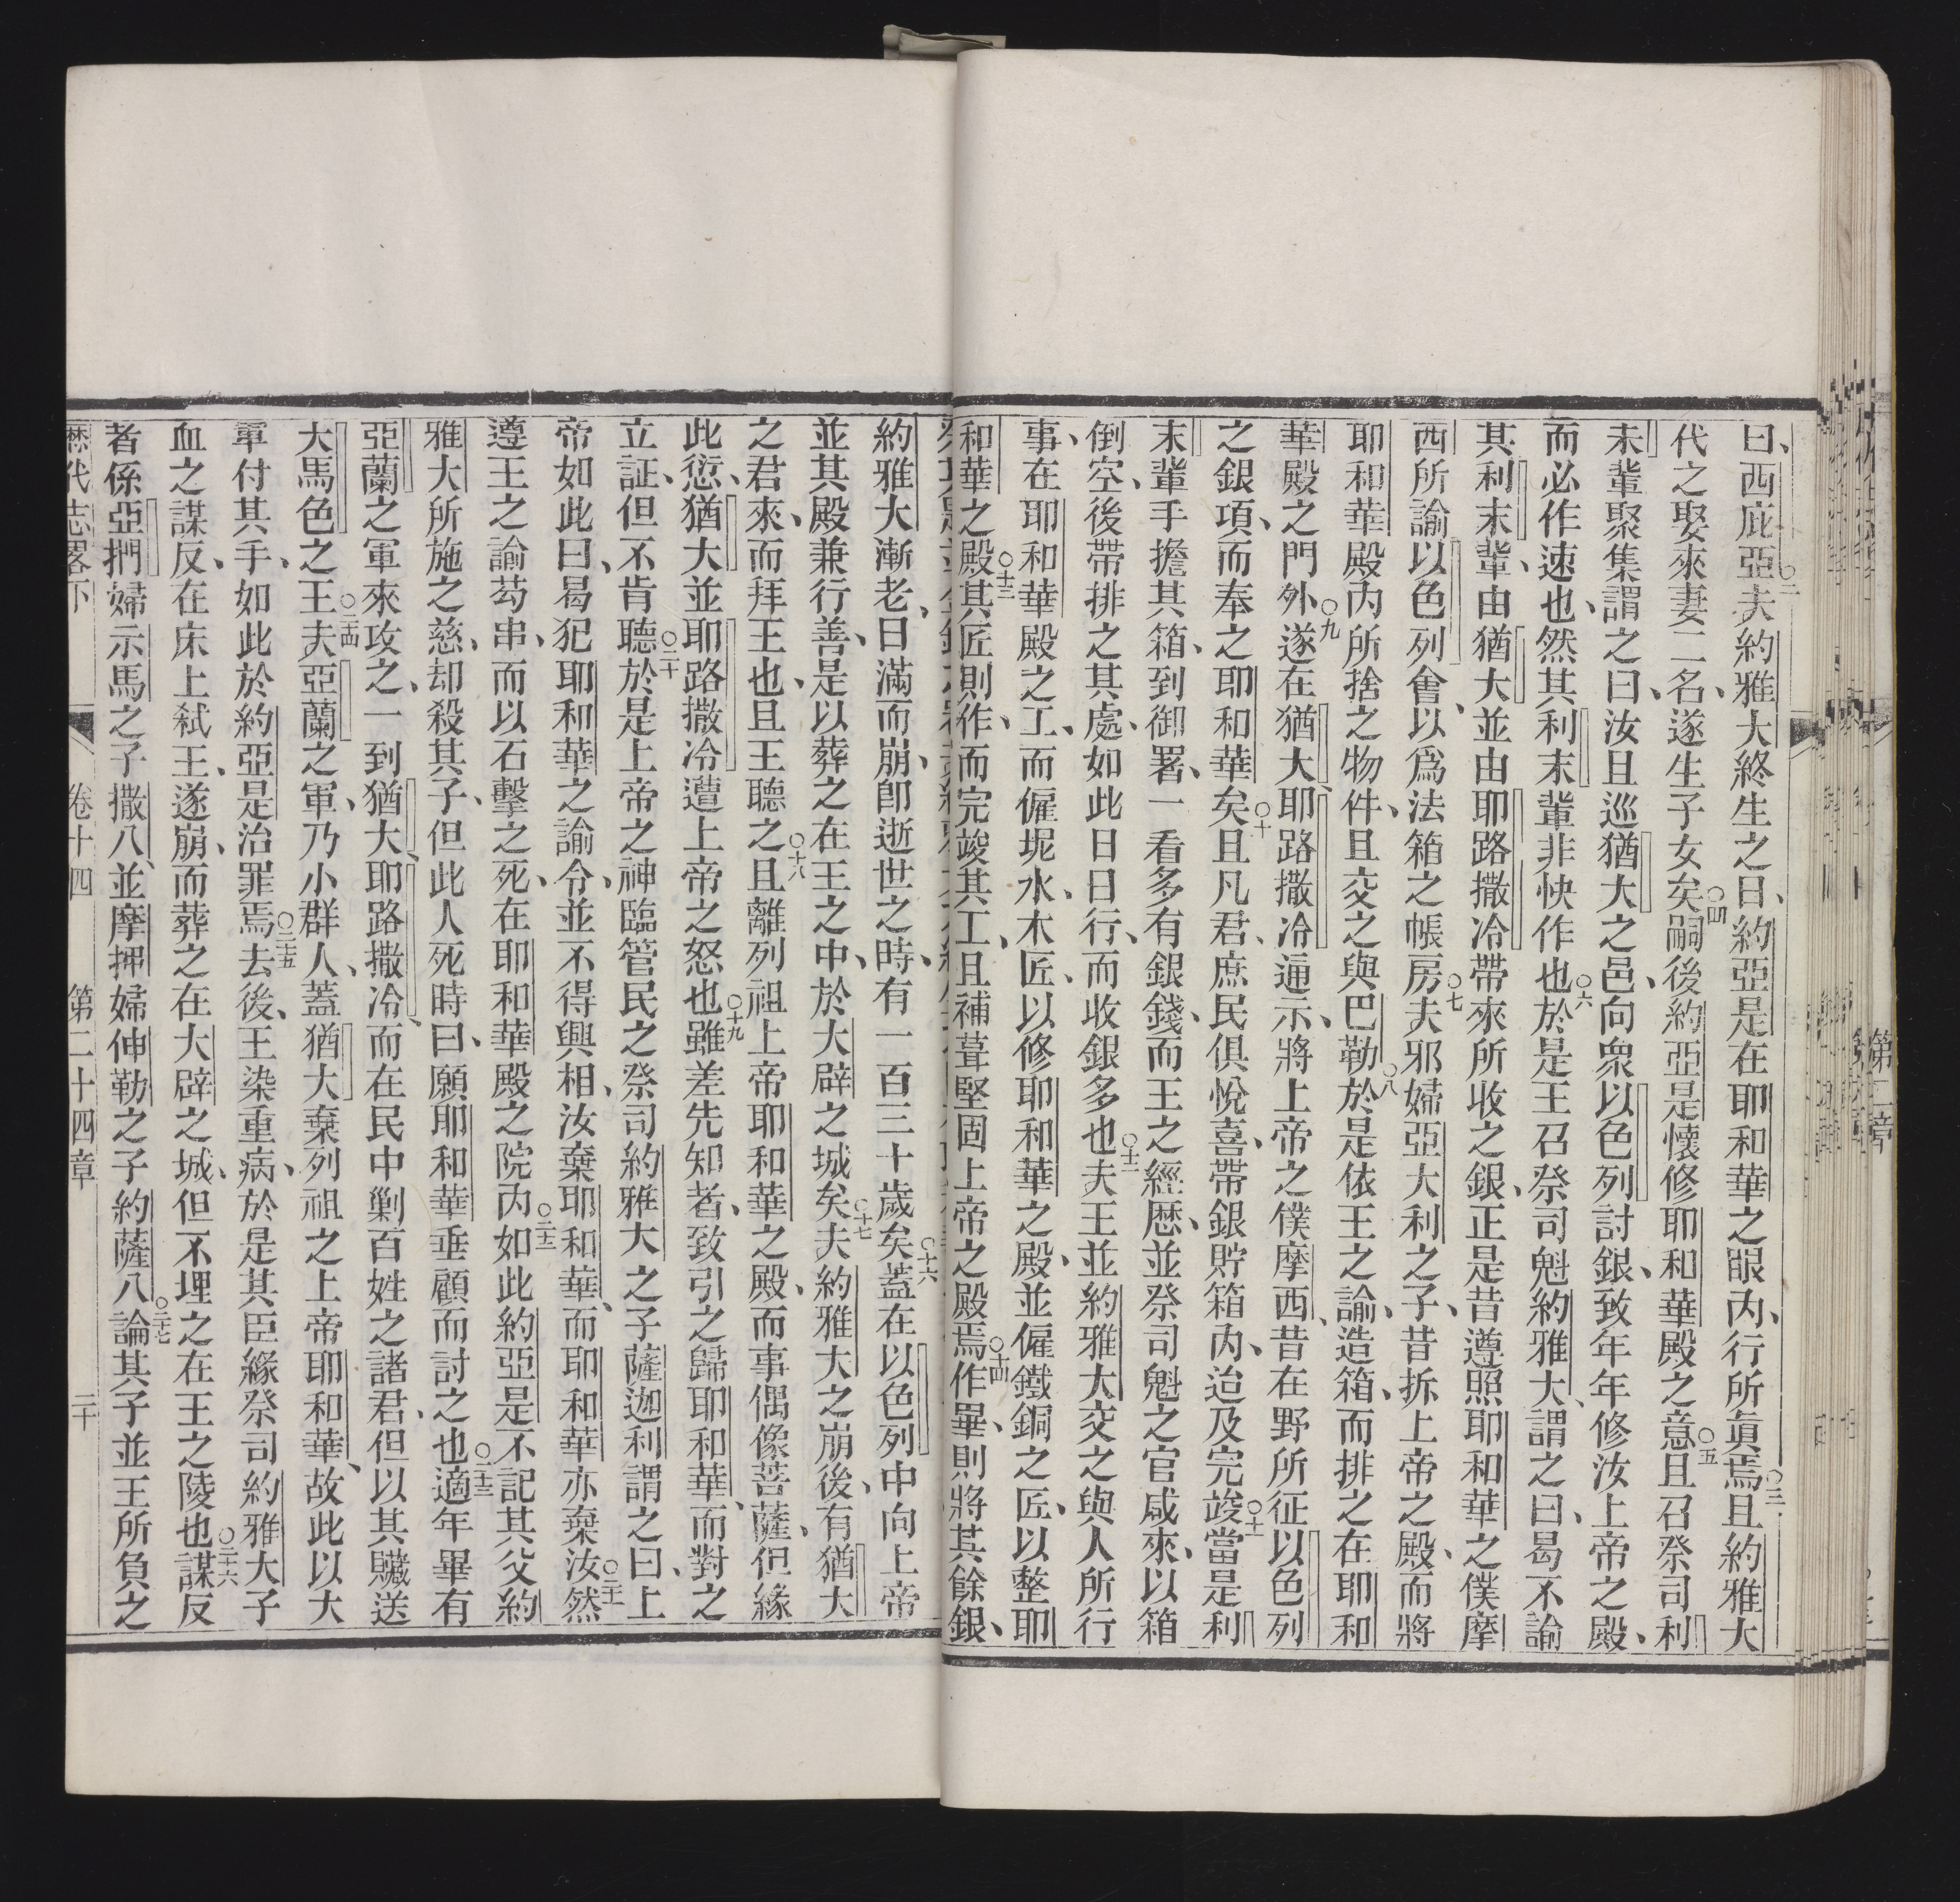 曰、西庇亞○二夫約雅大終生之日、約亞是在耶和華之眼內、行所眞焉○三且約雅大
代之娶來妻二名、遂生子女矣○四嗣後約亞是懷修耶和華殿之意○五且召祭司利
未輩聚集謂之曰、汝且巡猶大之邑、向眾以色列討銀、致年年修汝上帝之殿、
而必作速也、然其利末輩非快作也○六於是王召祭司魁約雅大、謂之曰、曷不諭
其利末輩、由猶大並由耶路撒冷帶來所收之銀、正是昔遵照耶和華之僕摩
西所諭以色列會、以爲法箱之帳房○七夫邪婦亞大利之子、昔拆上帝之殿、而將
耶和華殿內所捨之物件、且交之與巴勒○八於是依王之諭、造箱、而排之在耶和
華殿之門外○九遂在猶大、耶路撒冷逓示、將上帝之僕摩西、昔在野所征以色列
之銀項、而奉之耶和華矣○十且凡君、庶民俱悅喜、帶銀貯箱內、迨及完竣○十一當是利
末輩手擔其箱、到御署、一看多有銀錢、而王之經歷、並祭司魁之官咸來、以箱
倒空、後帶排之其處、如此日日行、而收銀多也○十二夫王並約雅大交之與人所行
事、在耶和華殿之工、而僱坭水、木匠、以修耶和華之殿、並僱鐵銅之匠、以整耶
和華之殿○十三其匠則作、而完竣其工、且補葺堅固上帝之殿焉○十四作畢、則將其餘銀、
約雅大漸老、日滿而崩、卽逝世之時、有一百三十歲矣○十六蓋在以色列中向上帝
並其殿兼行善、是以葬之在王之中、於大辟之城矣○十七夫約雅大之崩後、有猶大
之君來、而拜王也、且王聽之○十八且離列祖上帝耶和華之殿、而事偶像菩薩、但緣
此愆、猶大並耶路撒冷遭上帝之怒也○十九雖差先知者、致引之歸耶和華、而對之
立証、但不肯聽○二十於是上帝之神臨管民之祭司約雅大之子薩迦利謂之曰、上
帝如此曰、曷犯耶和華之諭令、並不得興相、汝棄耶和華、而耶和華亦棄汝○二十一然
遵王之諭芶串、而以石擊之死、在耶和華殿之院內○二十二如此約亞是不記其父約
雅大所施之慈、却殺其子、但此人死時曰、願耶和華垂顧而討之也○二十三適年畢有
亞蘭之軍來攻之、一到猶大、耶路撒冷、而在民中剿百姓之諸君、但以其贓送
大馬色之王○二十四夫亞蘭之軍、乃小群人、蓋猶大棄列祖之上帝耶和華、故此以大
軍付其手、如此於約亞是治罪焉○二十五去後、王染重病、於是其臣緣祭司約雅大子
血之謀反、在床上弑王、遂崩、而葬之在大辟之城、但不埋之在王之陵也○二十六謀反
者係亞捫婦示馬之子撒八、並摩押婦伸勒之子約薩八○二十七論其子並王所負之
歷代志畧下 卷十四 第二十四章 二十